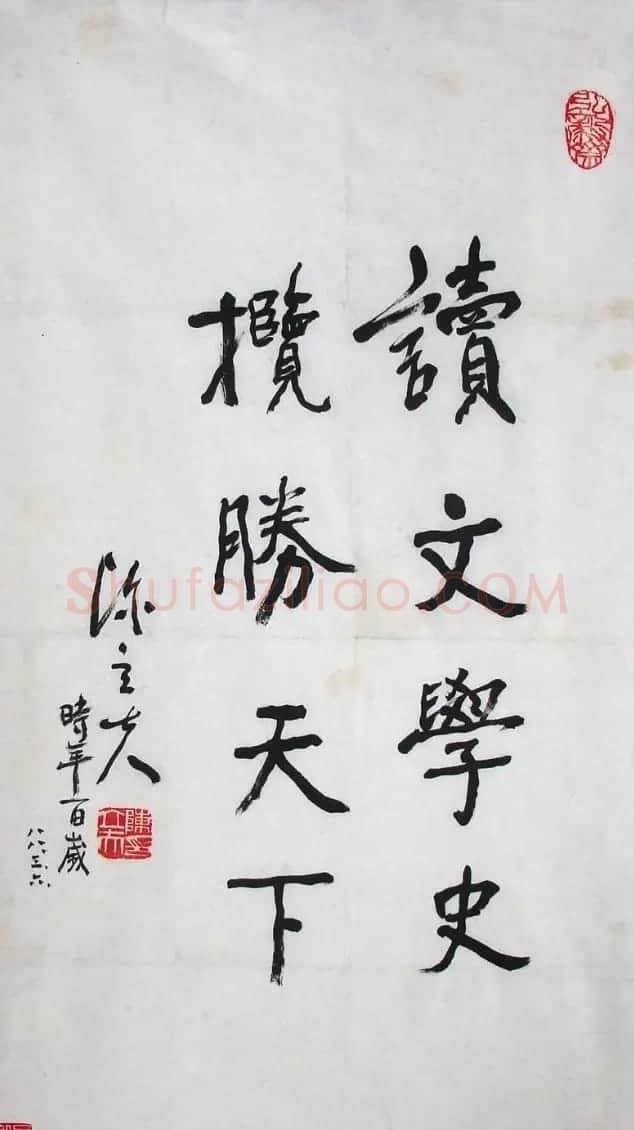 讀文學史
攬勝天下
陳立夫
時年百歲
八八、三、六、
Shufaziliao.COM